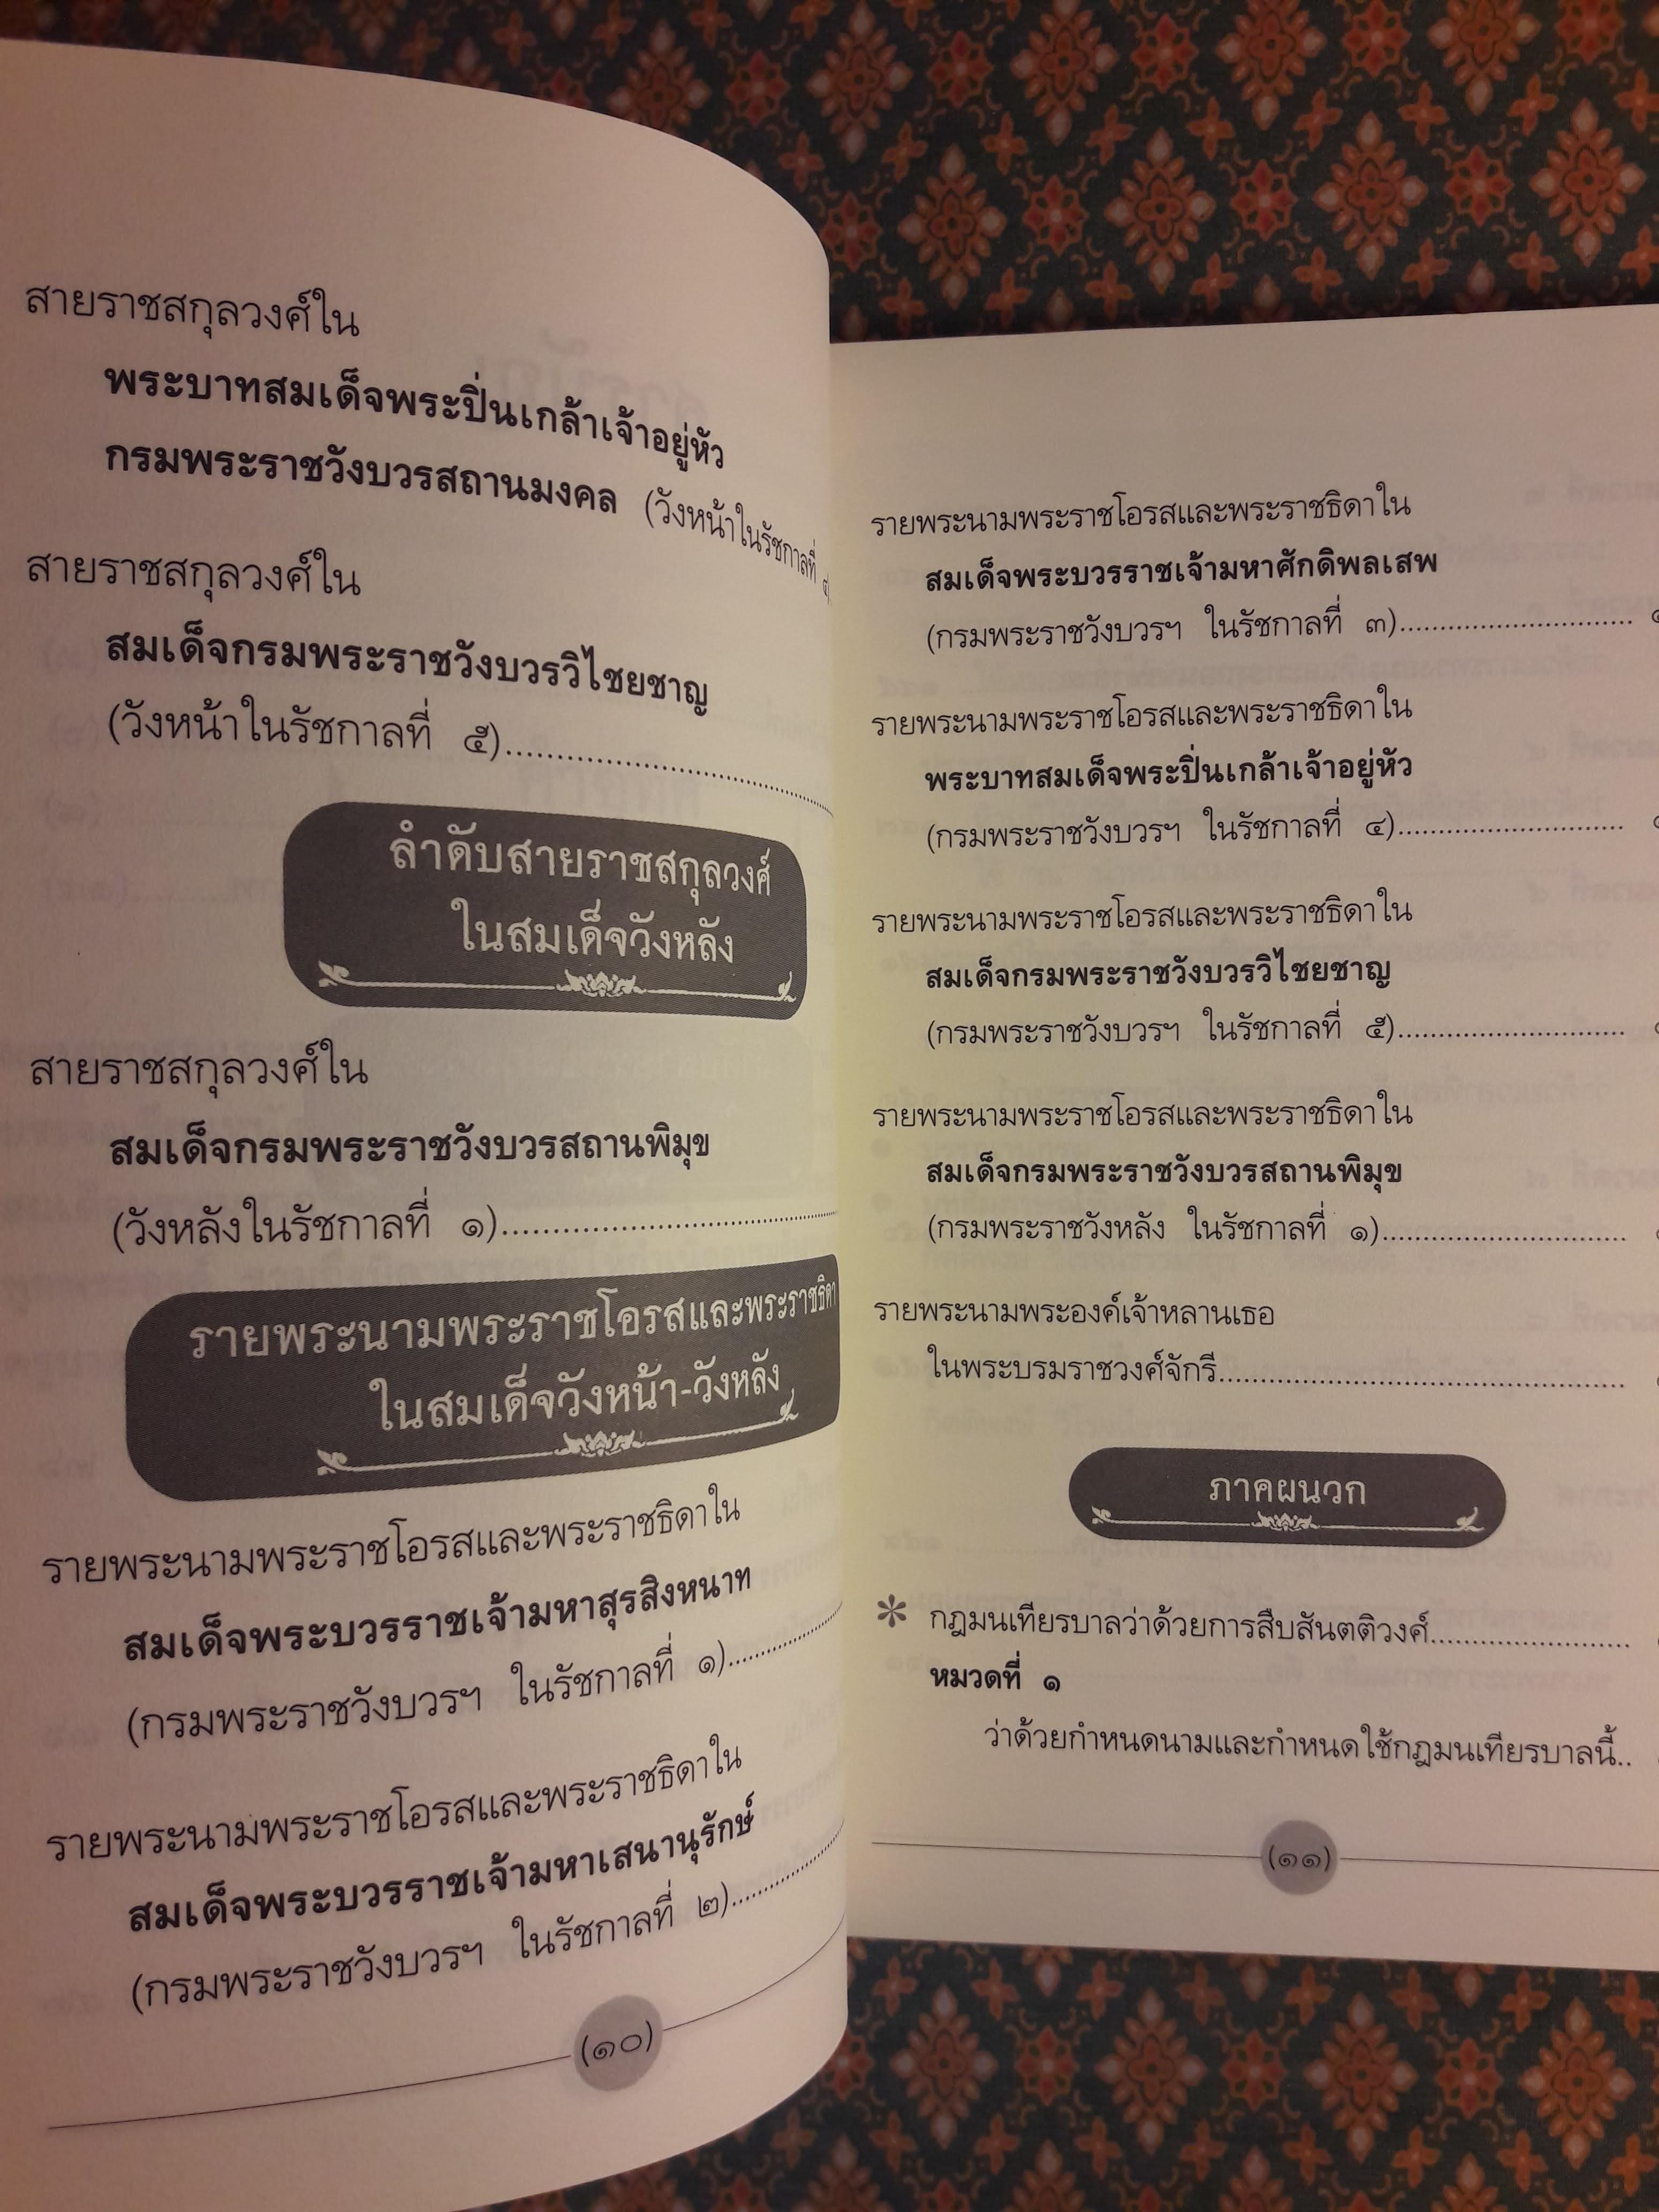 สายราชสกุลวงศ์ใน
พระบาทสมเด็จพระปิ่นเกล้าเจ้าอยู่หัว
กรมพระราชวังบวรสถานมงคล (วังหน้าในรัชกาลที่
สายราชสกุลวงศ์ใน
สมเด็จกรมพระราชวังบวรวิไชยชาญ
(วังหน้าในรัชกาลที่ ๕)..............................
ลำดับสายราชสกุลวงศ์
ในสมเด็จวังหลัง
สายราชสกุลวงศ์ใน
สมเด็จกรมพระราชวังบวรสถานพิมุข
(วังหลังในรัชกาลที่ ๑)..............................
รายพระนามพระราชโอรสและพระราชธิดา
ในสมเด็จวังหน้า-วังหลัง
รายพระนามพระราชโอรสและพระราชธิดาใน
สมเด็จพระบวรราชเจ้ามหาสุรสิงหนาท
(กรมพระราชวังบวรฯ ในรัชกาลที่ ๑)..............
รายพระนามพระราชโอรสและพระราชธิดาใน
สมเด็จพระบวรราชเจ้ามหาเสนานุรักษ์
(กรมพระราชวังบวรฯ ในรัชกาลที่ ๒)..............
(๑๐)
รายพระนามพระราชโอรสและพระราชธิดาใน
สมเด็จพระบวรราชเจ้ามหาศักดิพลเสพ
(กรมพระราชวังบวรฯ ในรัชกาลที่ ๓).............................
รายพระนามพระราชโอรสและพระราชธิดาใน
พระบาทสมเด็จพระปิ่นเกล้าเจ้าอยู่หัว
(กรมพระราชวังบวรฯ ในรัชกาลที่ ๔)............................
รายพระนามพระราชโอรสและพระราชธิดาใน
สมเด็จกรมพระราชวังบวรวิไชยชาญ
(กรมพระราชวังบวรฯ ในรัชกาลที่ ๕)............................
รายพระนามพระราชโอรสและพระราชธิดาใน
สมเด็จกรมพระราชวังบวรสถานพิมุข
(กรมพระราชวังหลัง ในรัชกาลที่ ๑)..............................
รายพระนามพระองค์เจ้าหลานเธอ
ในพระบรมราชวงศ์จักรี..................................................
ภาคผนวก
* กฎมนเทียรบาลว่าด้วยการสืบสันตติวงศ์.........................
หมวดที่ ๑
ว่าด้วยกำหนดนามและกำหนดใช้กฎมนเทียรบาลนี้..
(๑๑)